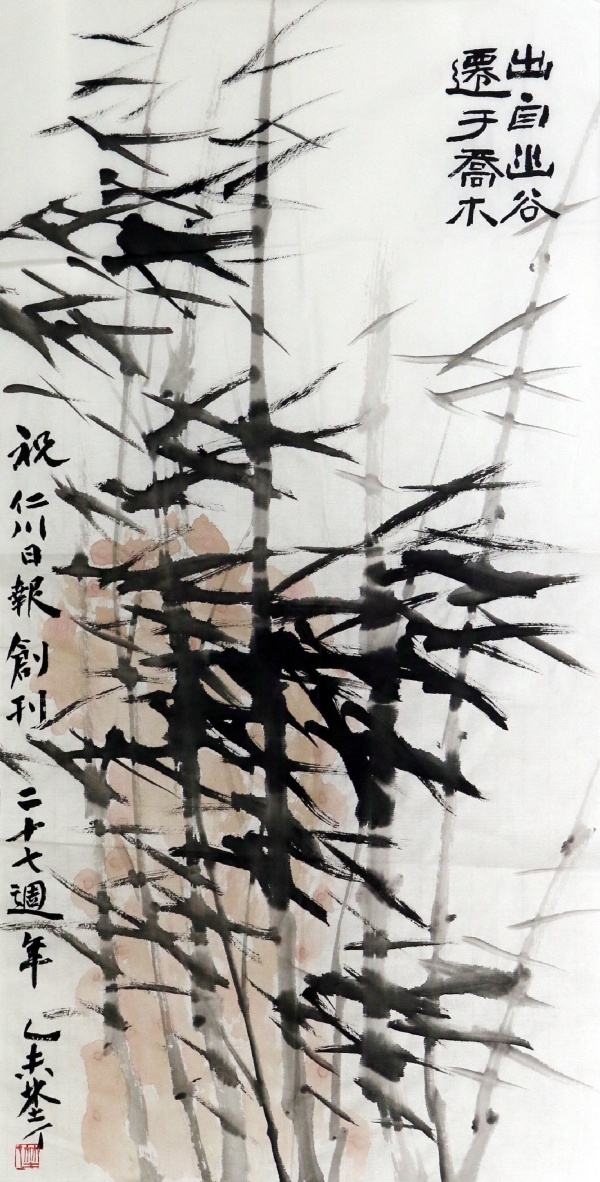 出自幽谷
遷于喬木
祝 仁川日報 創刊 二十七週年 乙未 埜丁